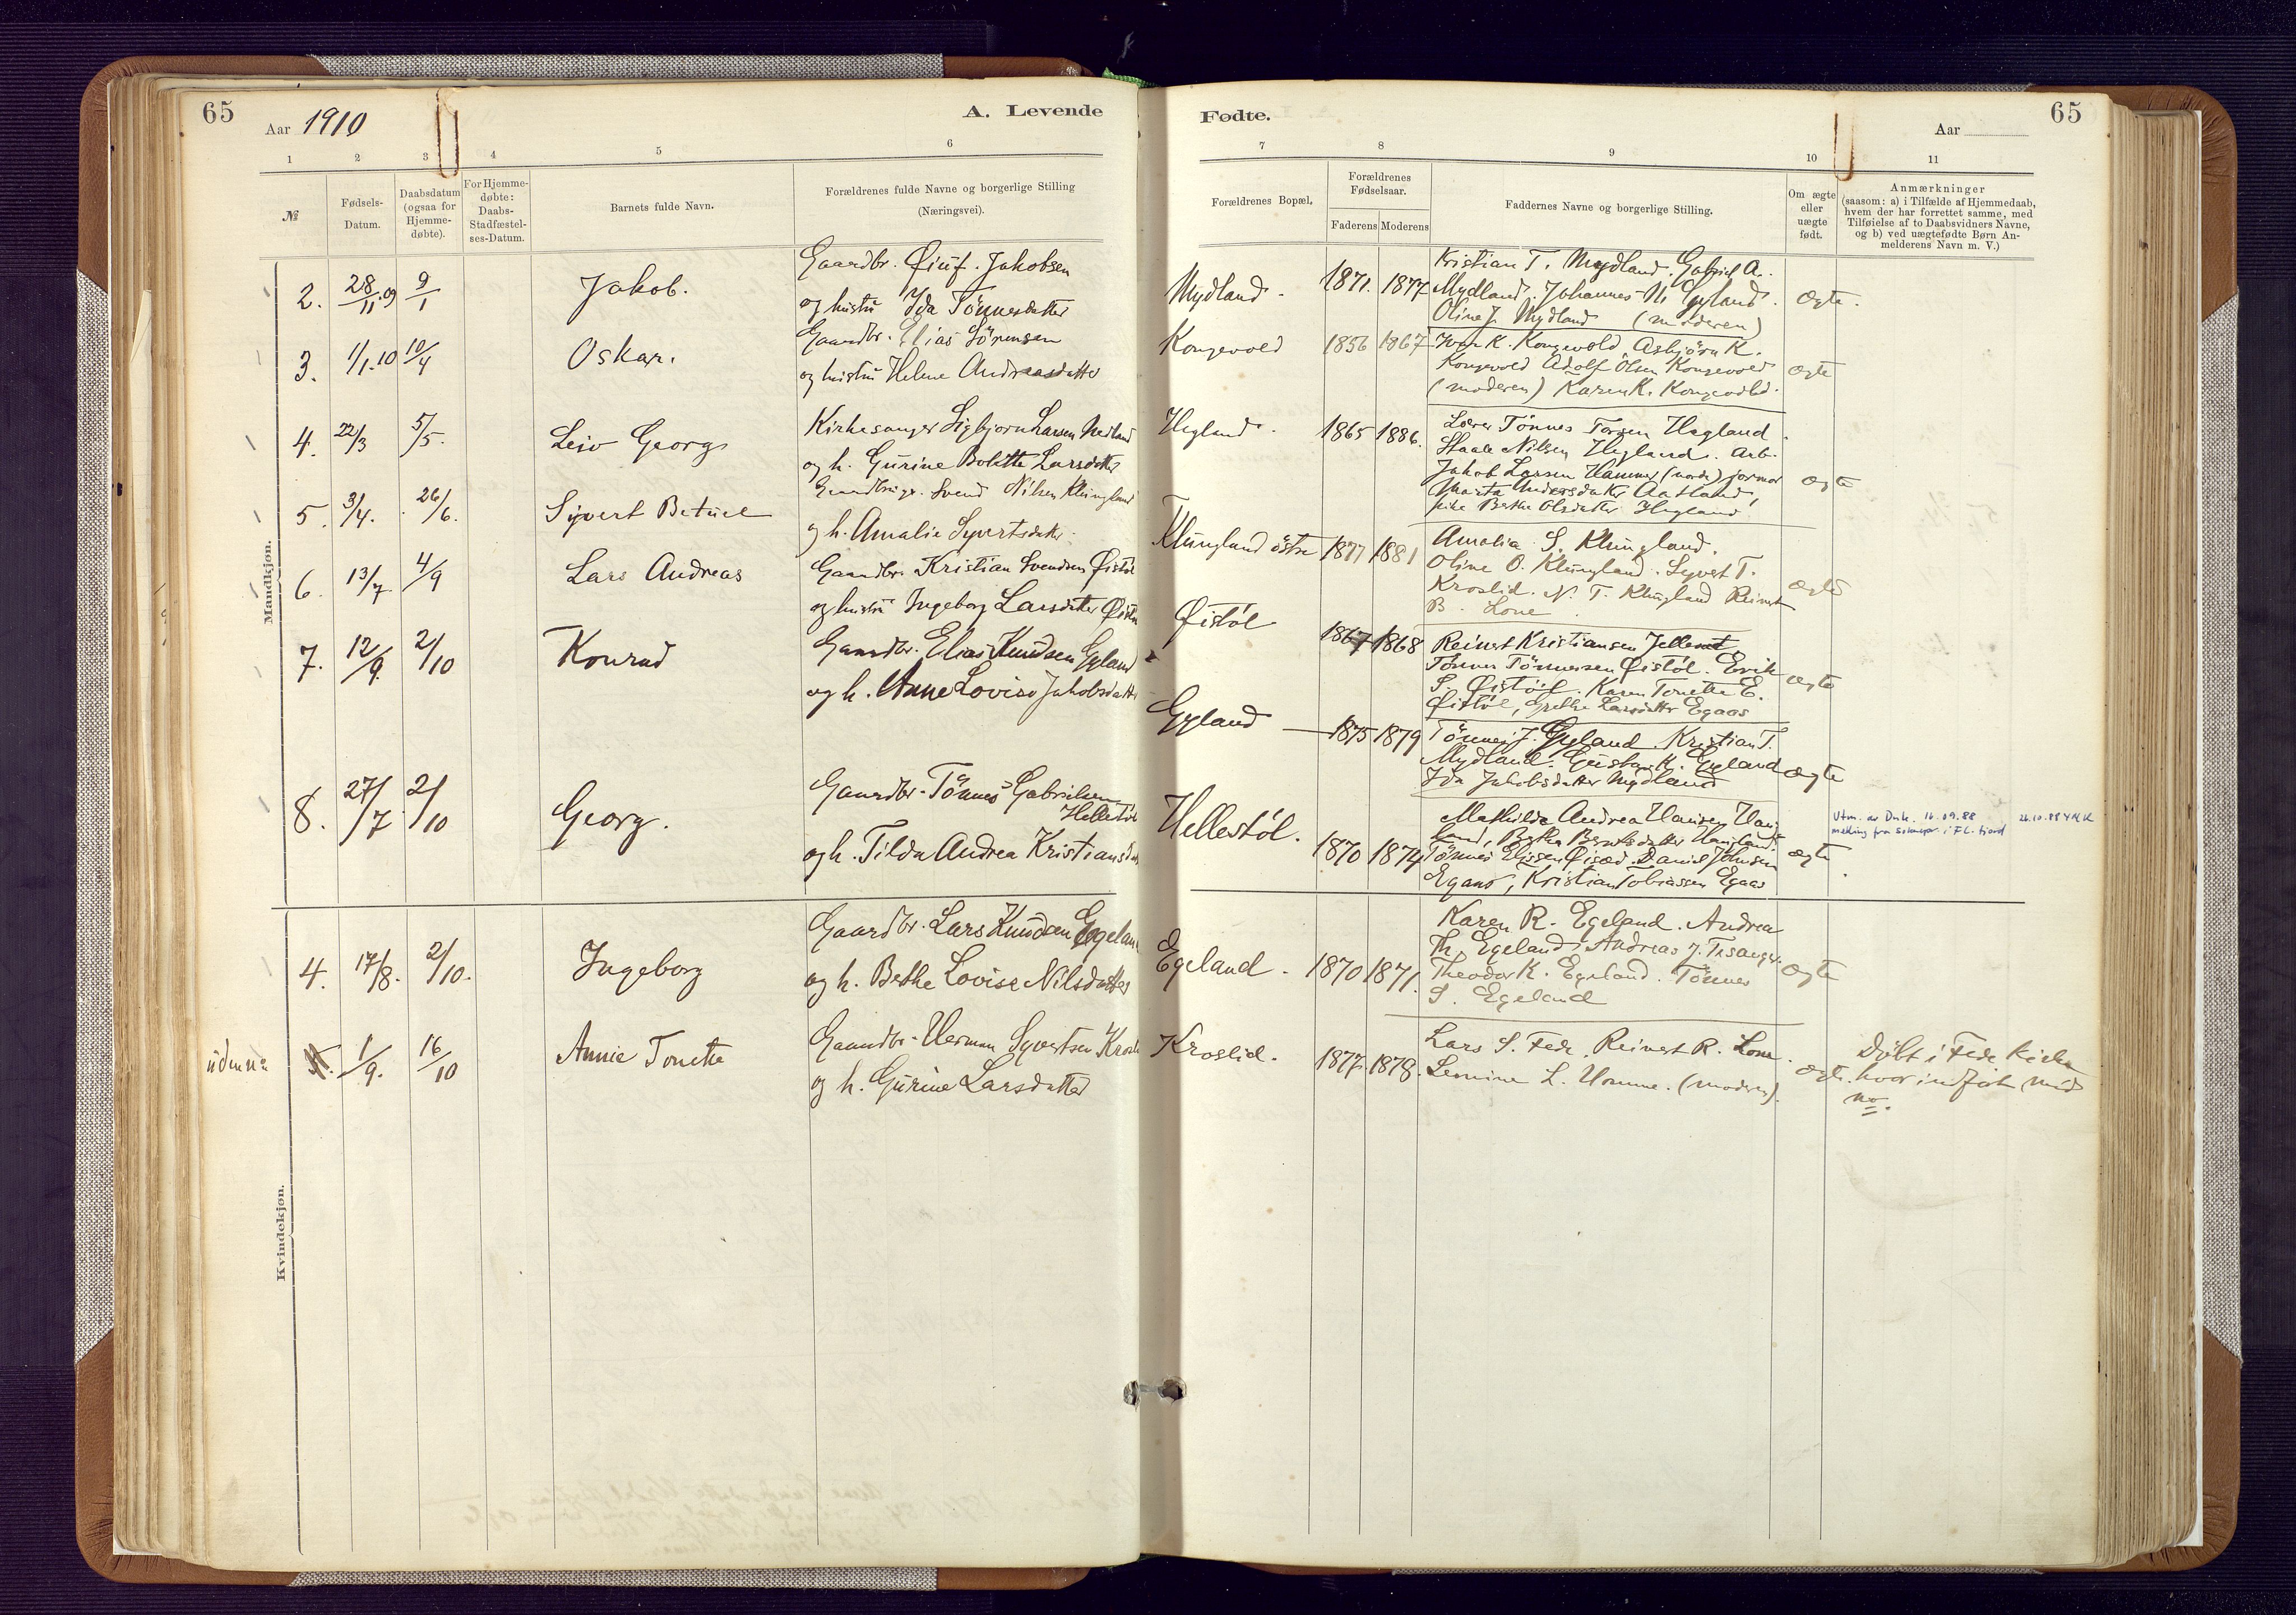 65
Aar 1910
A. Levende
1 2 3 4 5 6
№
Fødsels-Datum.
Daabsdatum (ogsaa for Hjemme-døbte).
For Hjemme-døbte: Daabs-Stadfæstel-ses-Datum.
Barnets fulde Navn.
Forældrenes fulde Navne og borgerlige Stilling
(Næringsvei).
Mandkjøn.
2. 28/11.09 9/1 Jakob.
Gaardbr. Øiuf. Jakobsen
og hustru Ida Tönnesdatter
3. 1/1.10 10/4 Oskar.
Gaardbr. Elias Sörensen
og hustru Helene Andreasdatter
4. 22/3 5/5. Leiv Georg
Kirkesanger Sigbjorn Larsen Nedland
og h. Gurine Bolette Larsdatter
5. 3/4. 26/6. Syvert Betuel
Gaardbruger. Svend Nilsen Klungland
og h. Amalie Syvertsdatter
6. 13/7 4/9 Lars Andreas
Gaardbr. Kristian Svendsen Øistöl
og hustru Ingeborg Larsdatter
7. 12/9. 2/10 Konrad
Gaardbr. Elias Knudsen Gyland
og h. Anne Lovise Jakobsdatter
8. 27/7 2/10 Georg.
Gaardbr. Tönnes Gabrielsen
Hellestöl
og h. Tilda Andrea Kristiansdat
Kvindekjøn.
4. 17/8. 2/10. Ingeborg
Gaardbr. Lars Knudsen Egeland
og h. Berthe Lovise Nilsdatter
uden no 1/9. 16/10 Annie Tonette
Gaardbr. Herman Syvertsen Kroslid
og h. Gurine Larsdatter
Fødte.
65
Aar
7 8 9 10 11
Forældrenes Bopæl.
Forældrenes Fødselsaar.
Faderens Moderens
Faddernes Navne og borgerlige Stilling.
Om ægte eller uægte født.
Anmærkninger
(saasom: a) i Tilfælde af Hjemmedaab,
hvem der har forrettet samme, med
Tilføielse af to Daabsvidners Navne,
og b) ved uægtefødte Børn An-
melderens Navn m. V.)
Mydland. 1871. 1877
Kristian T. Mydland. Gabriel A.
Mydland. Johannes N. Gyland.
Oline J. Mydland (moderen)
ægte.
Kongevold 1856 1867
Iver K. Kongevold Asbjörn K.
Kongevold Adolf Olsen Kongevold
(moderen) Karen K. Kongevold.
ægte
Hegland. 1865 1886.
Lærer Tönnes Torsen Hegland.
Staale Nilsen Hegland. Arb.
Jakob Larsen Hammer
Marta Andersdatter Aatland,
pike Berthe Olsdatter Hegland
ægte
Klungland östre 1877 1881
Amalia S. Klungland.
Oline O. Klungland. Syvert T.
Kroslid. N. T. Klungland Reinert
B. Lone
ægte
Øistöl 1867 1868
Reinert Kristiansen
Tönnes Tönnessen Øistöl. Erik
S. Øistöl. Karen Tonette E.
Øistöl, Grethe Larsdatter Egaas
ægte
Gyland 1875 1879
Tönnes J. Gyland Kristian T.
Mydland. Gustav K. Gyland
Ida Jakobsdatter Mydland
ægte
Hellestöl. 1870 1874
Mathilde Andrea Hansen Haug
land, Berthe Berntsdatter Haugland.
Tönnes Eliassen Daniel Johnsen
Egaas, Kristian Tobiassen Egaas
ægte
Utm. av Dnk. 16.09.88 26.10.88
melding fra sokнepr. i Fl. fjord
Egeland. 1870 1871.
Karen R. Egeland. Andrea
Th. Egeland. Andreas J. Tesaker.
Theodor K. Egeland. Tönnes
S. Egeland
ægte
Kroslid. 1877 1878.
Lars S. Fede. Reinert R. Lone.
Lemine L. Homme. (moderen).
ægte.
Døbt i Fede Kirke
hvor indført med
no.